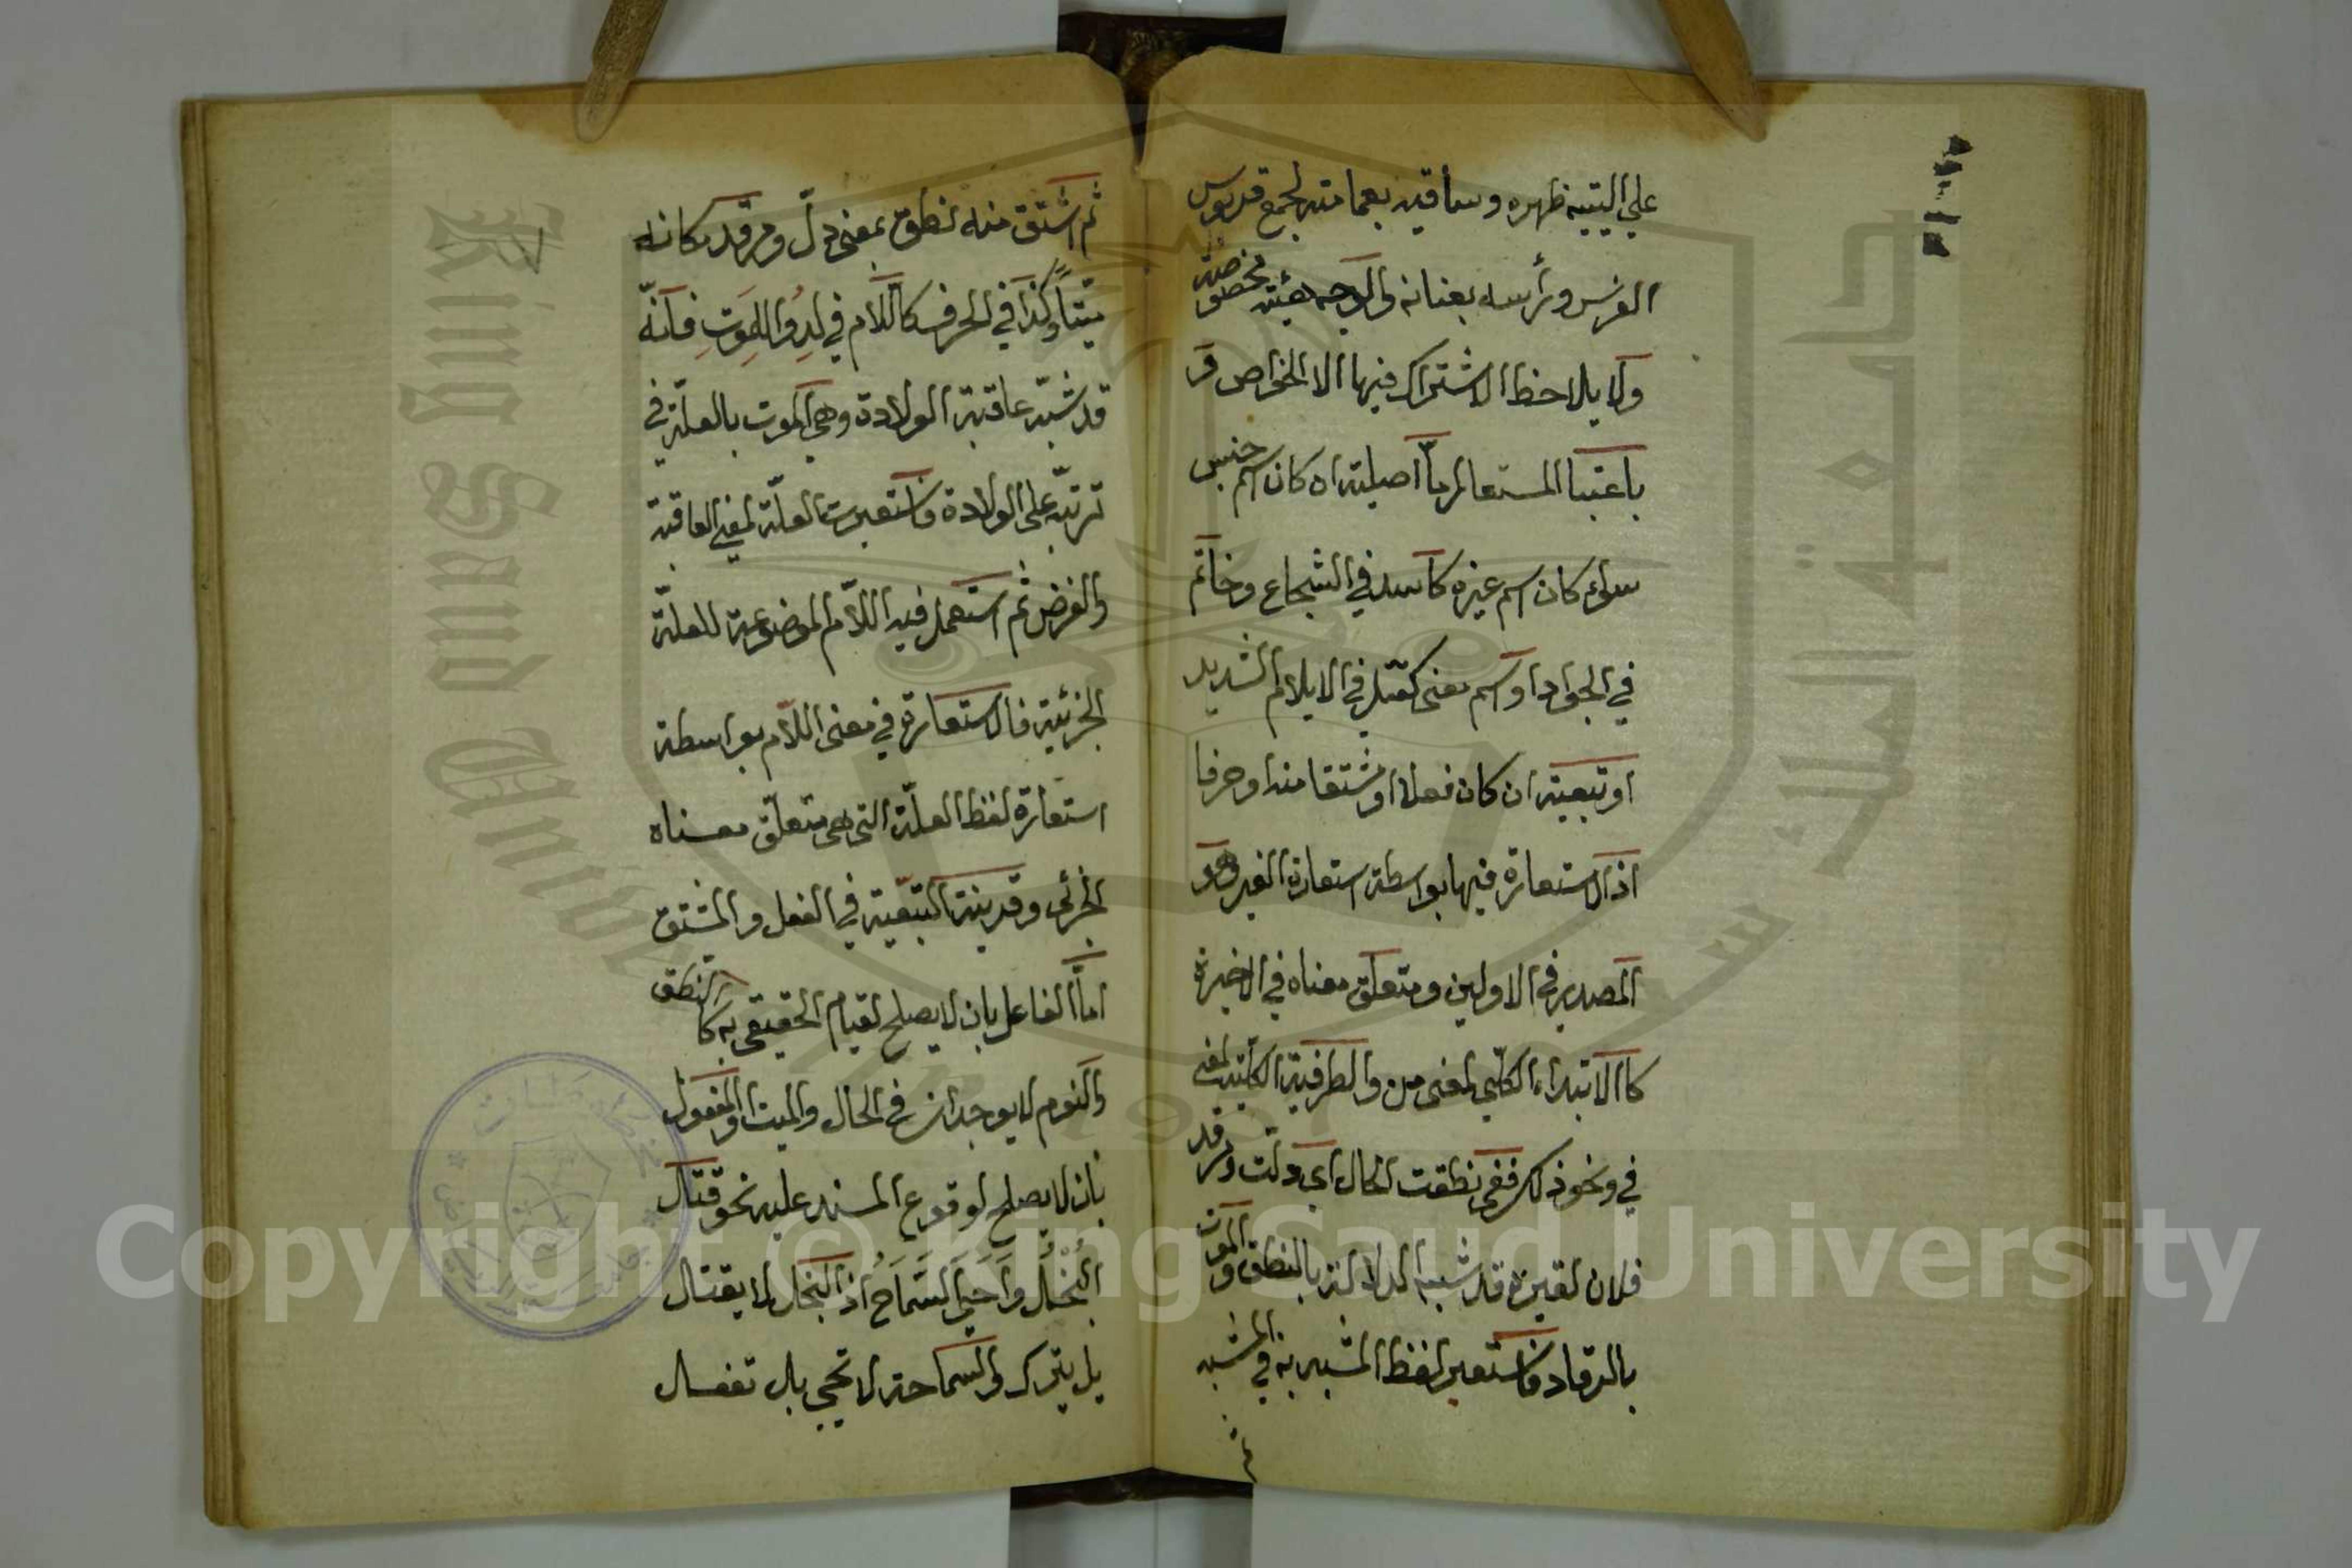 على اليتيه ظهره وساقيه بعمامته لجمع قربوس
الفرس ورأسه بعنانه والوجه هيئة مخصوصة
ولا يلاحظ الاشتراك فيها الا الخواص و
باعتبار المستعار اما اصلية ان كان اسم جنس
سواء كان اسم عين كاسد في الشجاع وخاتم
في الجواد او اسم معنى كقتل في الايلام الشديد
او تبعية ان كان فعلا او مشتقا منه او حرفا
اذ الاستعارة فيها بواسطة استعارة الغير وهو
المصدر في الاولين ومتعلق معناه في الاخيرة
كالابتداء الكلي لمعنى من والظرفية الكلية لمعنى
في ونحو ذلك ففي نطقت الحال اى دلت ومرقد
فلان لقبره قد شبه الدلالة بالنطق والموت
بالرقاد واستعير لفظ المشبه به في المشبه
ثم
ثم اشتق منه نطق بمعنى دل ومرقد مكانه
ميتا وكذا في الحرف كاللام في لِدُوا لِلْمَوتِ فانه
قد شبه عاقبة الولادة وهى الموت بالعلة في
ترتبه على الولادة واستعيرت العلة لمعنى العاقبة
والغرض ثم استعمل فيه اللام الموضوعة للعلة
الجزئية فالاستعارة في معنى اللام بواسطة
استعارة لفظ العلة التى هى متعلق معناه
الجزئى وقرينة التبعية في الفعل والمشتق
اما الفاعل بان لا يصلح لقيام الحقيقى به كالنطق
والنوم لا يوجدان في الحال والميت او المفعول
بان لا يصلح لوقوع المسند عليه نحو قتل
البُخْلَ وَاَحْيَى السَّمَاحَ اذ البخل لا يقتل
بل يترك والسماحة لا تحيى بل تفعل
Copyright © King Saud University
King Saud University
جامعة الملك سعود
1957